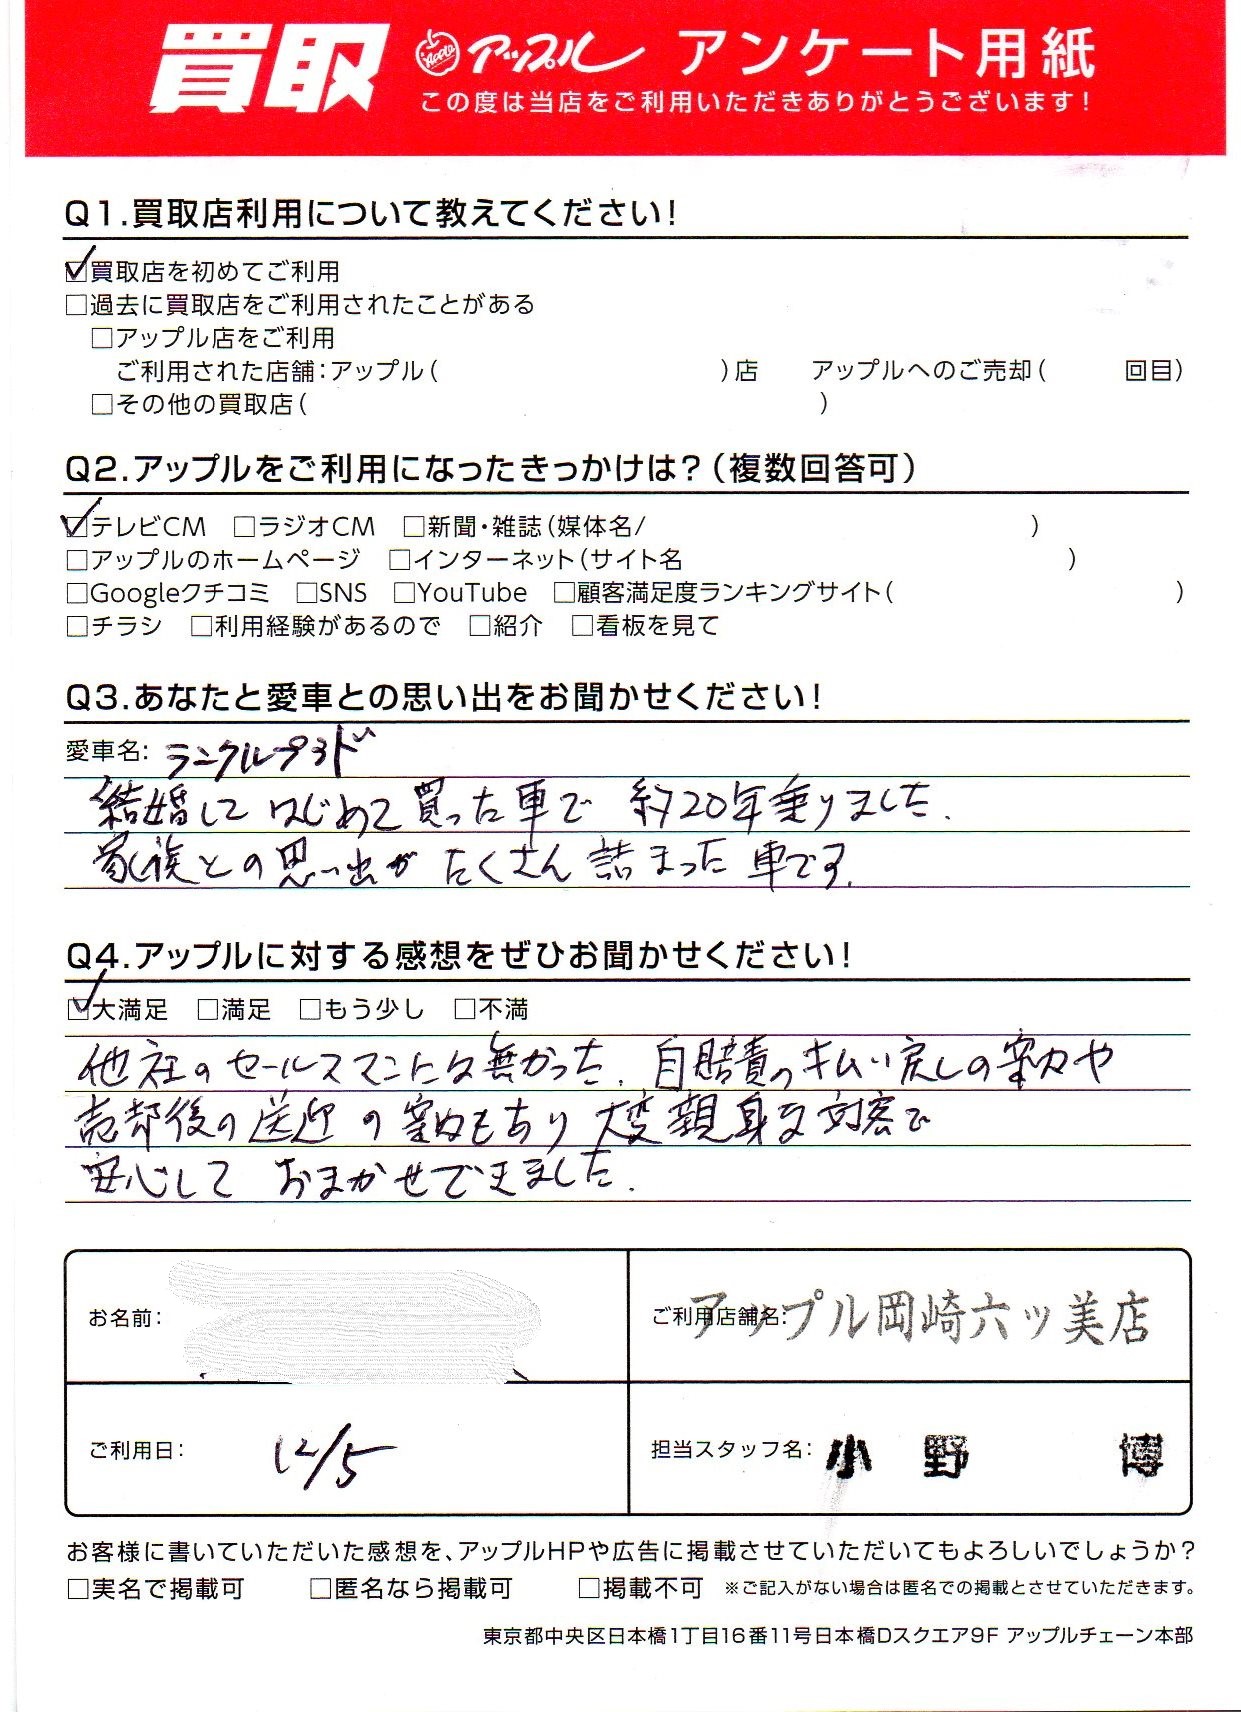 買取 Apple アップル アンケート用紙
この度は当店をご利用いただきありがとうございます!
Q1.買取店利用について教えてください!
☑買取店を初めてご利用
□過去に買取店をご利用されたことがある
□アップル店をご利用
ご利用された店舗:アップル( )店 アップルへのご売却( 回目)
□その他の買取店( )
Q2.アップルをご利用になったきっかけは?(複数回答可)
☑テレビCM □ラジオCM □新聞・雑誌(媒体名/ )
□アップルのホームページ □インターネット(サイト名 )
□Googleクチコミ □SNS □YouTube □顧客満足度ランキングサイト( )
□チラシ □利用経験があるので □紹介 □看板を見て
Q3.あなたと愛車との思い出をお聞かせください!
愛車名: ランクルプラド
結婚して はじめて買った車で 約20年乗りました.
家族との思い出が たくさん 詰まった 車です.
Q4.アップルに対する感想をぜひお聞かせください!
☑大満足 □満足 □もう少し □不満
他社のセールスマンには無かった. 自賠責の払い戻しの案内や
売却後の送迎の案内もあり 大変親身な対応で
安心して おまかせできました.
お名前:
ご利用店舗名: アップル岡崎六ッ美店
ご利用日: 12/5
担当スタッフ名: 小野 博
お客様に書いていただいた感想を、アップルHPや広告に掲載させていただいてもよろしいでしょうか?
□実名で掲載可 □匿名なら掲載可 □掲載不可 ※ご記入がない場合は匿名での掲載とさせていただきます。
東京都中央区日本橋1丁目16番11号日本橋Dスクエア9F アップルチェーン本部